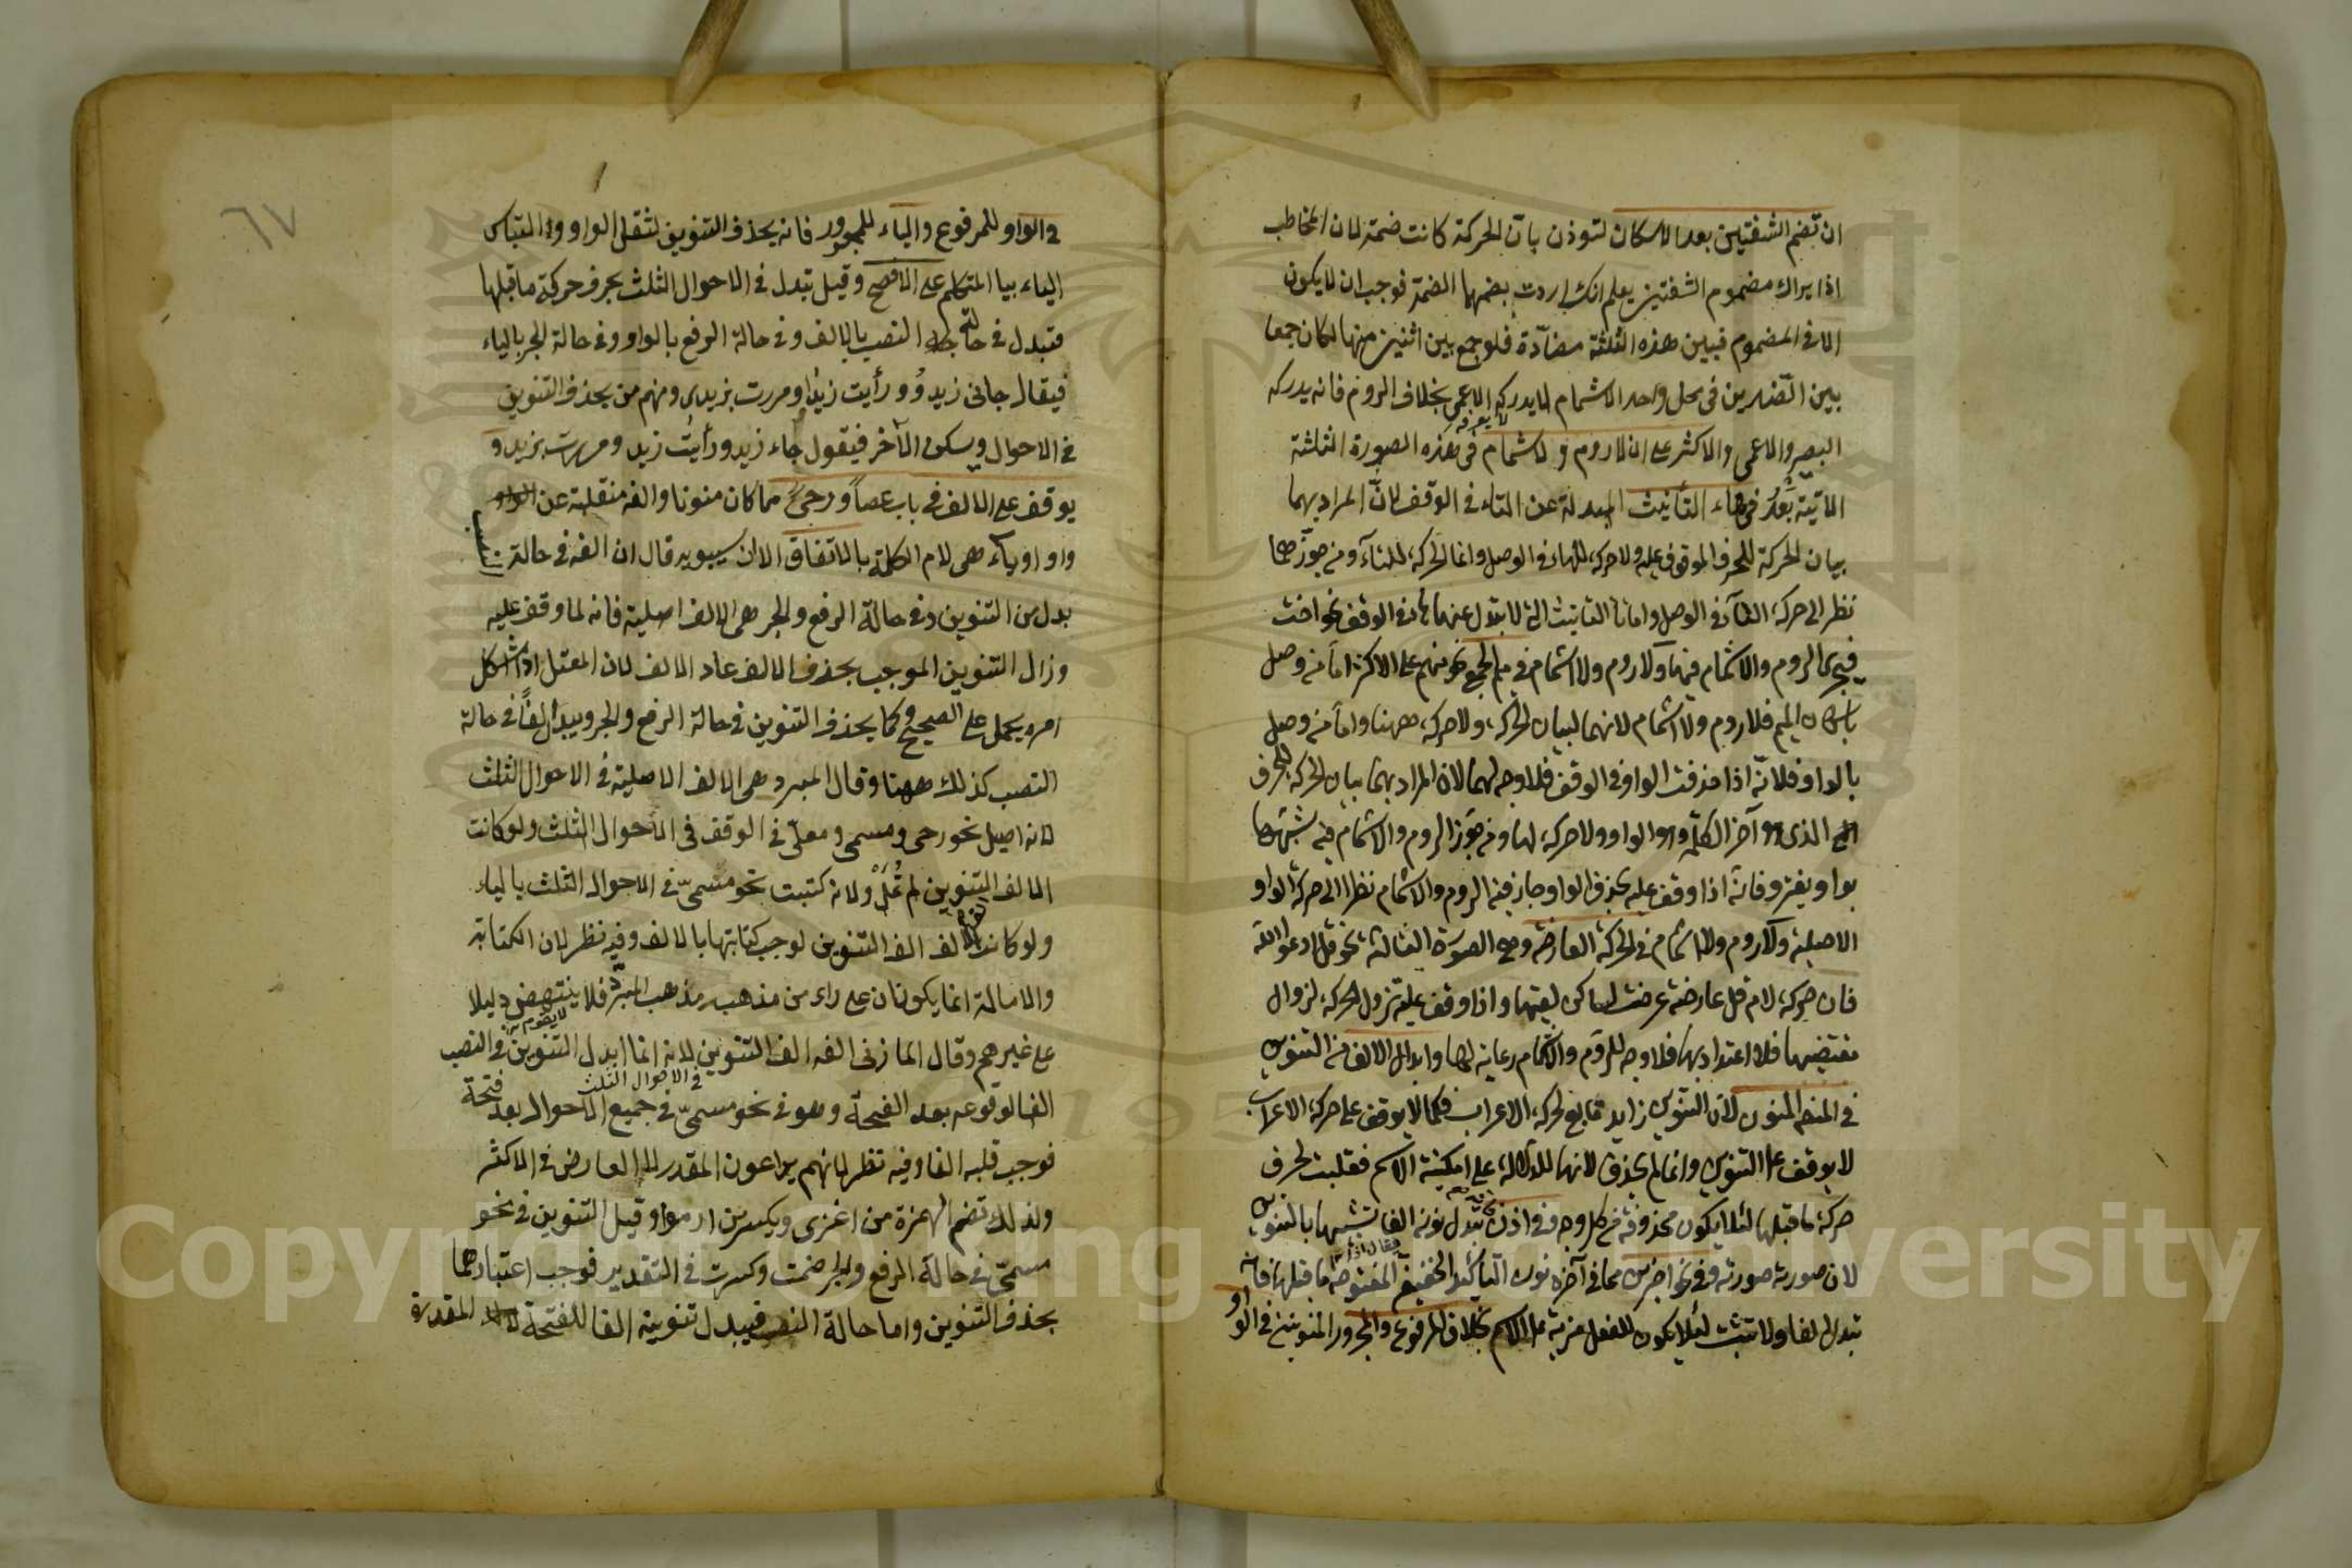 ان تضم الشفتين بعد الاسكان لتوذن بان الحركة كانت ضمة لان المخاطب
اذا يراك مضموم الشفتين يعلم انك اردت بضمها الضمة فوجب ان لا يكون
الا في المضموم فبين هذه الثلثة مضادة فلو جمع بين اثنين منها لكان جمعا
بين الضدين في محل واحد الاشمام لا يدركه الاعمى بخلاف الروم فانه يدركه
لا يعرفه
البصير والاعمى والاكثر على ان لا روم ولا اشمام في هذه الصورة الثلثة
الآتية بعد في هاء التأنيث المبدلة عن التاء في الوقف لان المراد بهما
بيان الحركة للحرف الموقوف عليه ولا حركة للهاء في الوصل وانما الحركة للتاء ومن جوزهما
نظر الى حركة التاء في الوصل واما تا التانيث التي لا يبدل عنها هاء في الوقف نحو اخت
فيجرى الروم والاشمام فيها ولا روم ولا اشمام في ميم الجمع نحو منهم على الاكثر اما من وصل
باسكان الميم فلا روم ولا اشمام لانهما لبيان الحركة ولا حركة ههنا واما من وصل
بالواو فلانه اذا حذفت الواو في الوقف فلا وجه لهما لان المراد بهما بيان الحركة للحرف
الذى هو آخر الكلمة وهو الواو ولا حركة لها ومن جوز الروم والاشمام فيه شبهها
بواو يغزو فانه اذا وقف عليه بحذف الواو جاز فيه الروم والاشمام نظرا الى حركة الواو
الاصلية ولا روم ولا اشمام في الحركة العارضة وهي الصورة الثالثة نحو قل ادعوا الله
فان حركة لام قل عارضة عرضت لساكن لقيها واذا وقف عليه تزول الحركة لزوال
مقتضيها فلا اعتداد بها فلا وجه للروم والاشمام رعاية لها وابدال الالف من التنوين
في المنصوب المنون لان التنوين زايد تابع لحركة الاعراب فكما لا يوقف على حركة الاعراب
لا يوقف على التنوين وانما لم يحذف لانها للدلالة على امكنية الاسم فقلبت لحرف
حركة ما قبلها لئلا يكون محذوفة من كل وجه وفي اذن تبدل نونه الفا تشبيها بالتنوين
لان صورته صورته وفي نحو اضربن مما في آخره نون التأكيد الخفيفة المفتوحة ما قبلها فانه
تبدل الفا ولا تثبت لئلا يكون للفعل مزية على الاسم بخلاف المرفوع والمجرور المنونين في الواو
٦٧
في الواو للمرفوع والياء للمجرور فانه يحذف التنوين لثقل الواو والتباس
الياء بيا المتكلم على الافصح وقيل تبدل في الاحوال الثلث بحرف حركة ما قبلها
فتبدل في حالة النصب بالالف وفي حالة الرفع بالواو وفي حالة الجر بالياء
فيقال جانى زيدو ورأيت زيدا ومررت بزيدى ومنهم من يحذف التنوين
في الاحوال ويسكن الآخر فيقول جاء زيد ورأيت زيد ومررت بزيد و
يوقف على الالف في باب عصا ورحى مما كان منونا والفه منقلبة عن
واو او ياء هى لام الكلمة بالاتفاق الا ان سيبويه قال ان الفه في حالة النصب
بدل من التنوين وفي حالة الرفع والجر هى الالف اصلية فانه لما وقف عليه
وزال التنوين الموجب بحذف الالف عاد الالف لان المعتل اذا اشكل
امره يحمل على الصحيح وكما يحذف التنوين في حالة الرفع والجر ويبدل الفا في حالة
النصب كذلك ههنا وقال المبرد هى الالف الاصلية في الاحوال الثلث
لانه اصيل نحو رحى ومسمى ومعلى في الوقف في الاحوال الثلث ولو كانت
الالف التنوين لم تمل ولانه كتبت نحو مسمى في الاحوال الثلث بالياء
ولو كانت الالف الف التنوين لوجب كتابتها بالالف وفيه نظر لان الكتابة
والامالة انما يكونان على راء من مذهبه مذهب المبرد فلا ينتهض دليلا
لا يقوم
على غيرهم وقال المازنى الفه الف التنوين لانه انما ابدل التنوين في النصب
في الاحوال الثلث
الفا لوقوعه بعد الفتحة وهو في نحو مسمى في جميع الاحوال بعد فتحة
فوجب قلبه الفا وفيه نظر لانهم يراعون المقدر لا العارض في الاكثر
ولذلك تضم الهمزة من اغزى ويكسر من ارموا وقيل التنوين في نحو
مسمى في حالة الرفع والجر ضمت وكسرت في التقدير فوجب اعتبارهما
بحذف التنوين واما حالة النصب فيبدل تنوينه الفا للفتحة المقدرة
Copyright © King Saud University